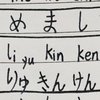 め ま し
li yu kin ken
り ゅ きん けん